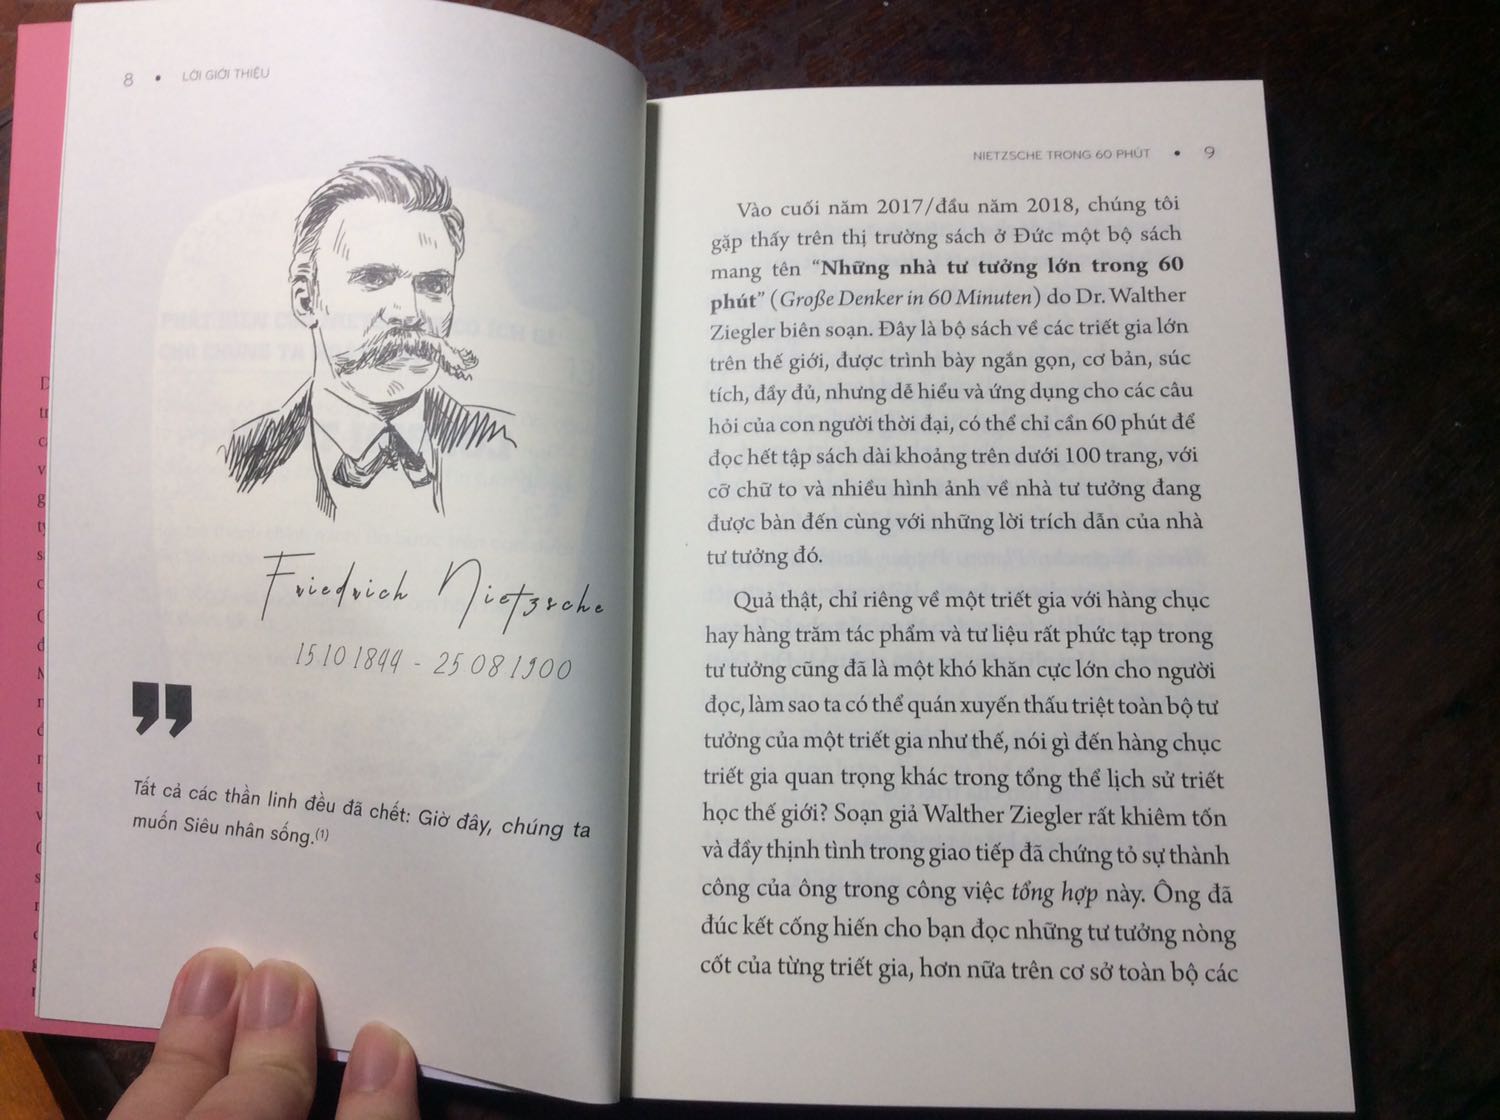 8 • LỜI GIỚI THIỆU
Friedrich Nietzsche
15 10 1844 - 25 08 1900
"
Tất cả các thần linh đều đã chết: Giờ đây, chúng ta
muốn Siêu nhân sống.(1)
NIETZSCHE TRONG 60 PHÚT • 9
Vào cuối năm 2017/đầu năm 2018, chúng tôi
gặp thấy trên thị trường sách ở Đức một bộ sách
mang tên “Những nhà tư tưởng lớn trong 60
phút” (Große Denker in 60 Minuten) do Dr. Walther
Ziegler biên soạn. Đây là bộ sách về các triết gia lớn
trên thế giới, được trình bày ngắn gọn, cơ bản, súc
tích, đầy đủ, nhưng dễ hiểu và ứng dụng cho các câu
hỏi của con người thời đại, có thể chỉ cần 60 phút để
đọc hết tập sách dài khoảng trên dưới 100 trang, với
cỡ chữ to và nhiều hình ảnh về nhà tư tưởng đang
được bàn đến cùng với những lời trích dẫn của nhà
tư tưởng đó.
Quả thật, chỉ riêng về một triết gia với hàng chục
hay hàng trăm tác phẩm và tư liệu rất phức tạp trong
tư tưởng cũng đã là một khó khăn cực lớn cho người
đọc, làm sao ta có thể quán xuyến thấu triệt toàn bộ tư
tưởng của một triết gia như thế, nói gì đến hàng chục
triết gia quan trọng khác trong tổng thể lịch sử triết
học thế giới? Soạn giả Walther Ziegler rất khiêm tốn
và đầy thịnh tình trong giao tiếp đã chứng tỏ sự thành
công của ông trong công việc tổng hợp này. Ông đã
đúc kết cống hiến cho bạn đọc những tư tưởng nòng
cốt của từng triết gia, hơn nữa trên cơ sở toàn bộ các